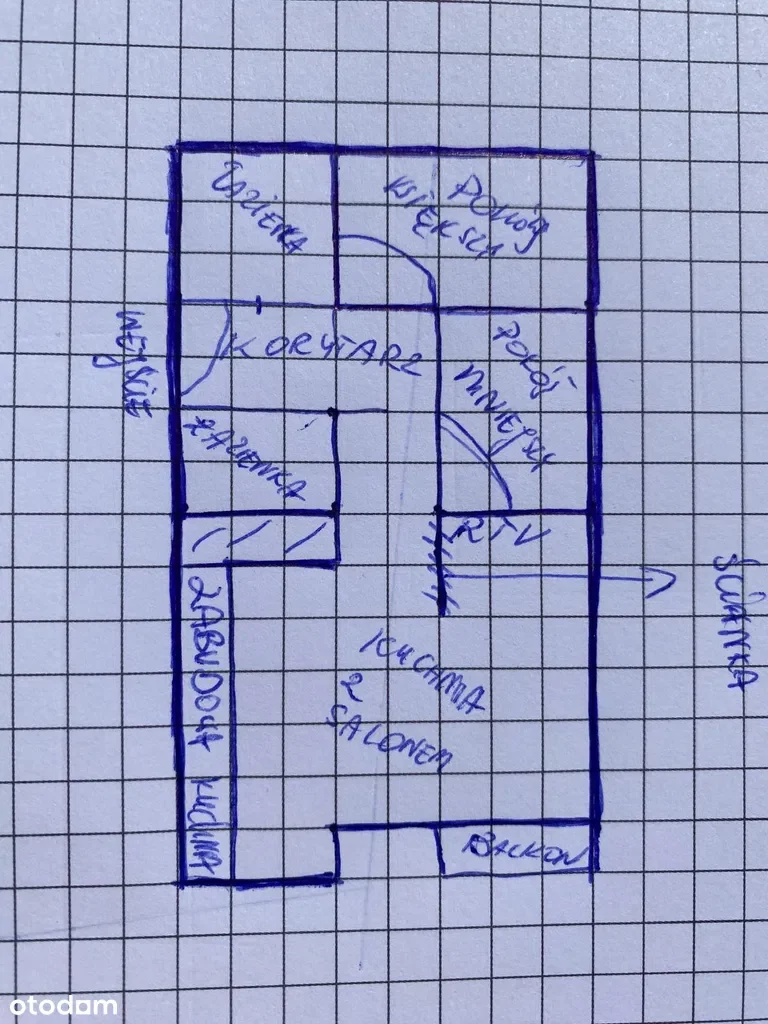 ŁAZIENKA
POKÓJ
WIĘKSZY
WEJŚCIE
KORYTARZ
POKÓJ
MNIEJSZY
ŁAZIENKA
RTV
ŚCIANKA
ZABUDOWA KUCHNA
KUCHNIA
Z
SALONEM
BALKON
otodom